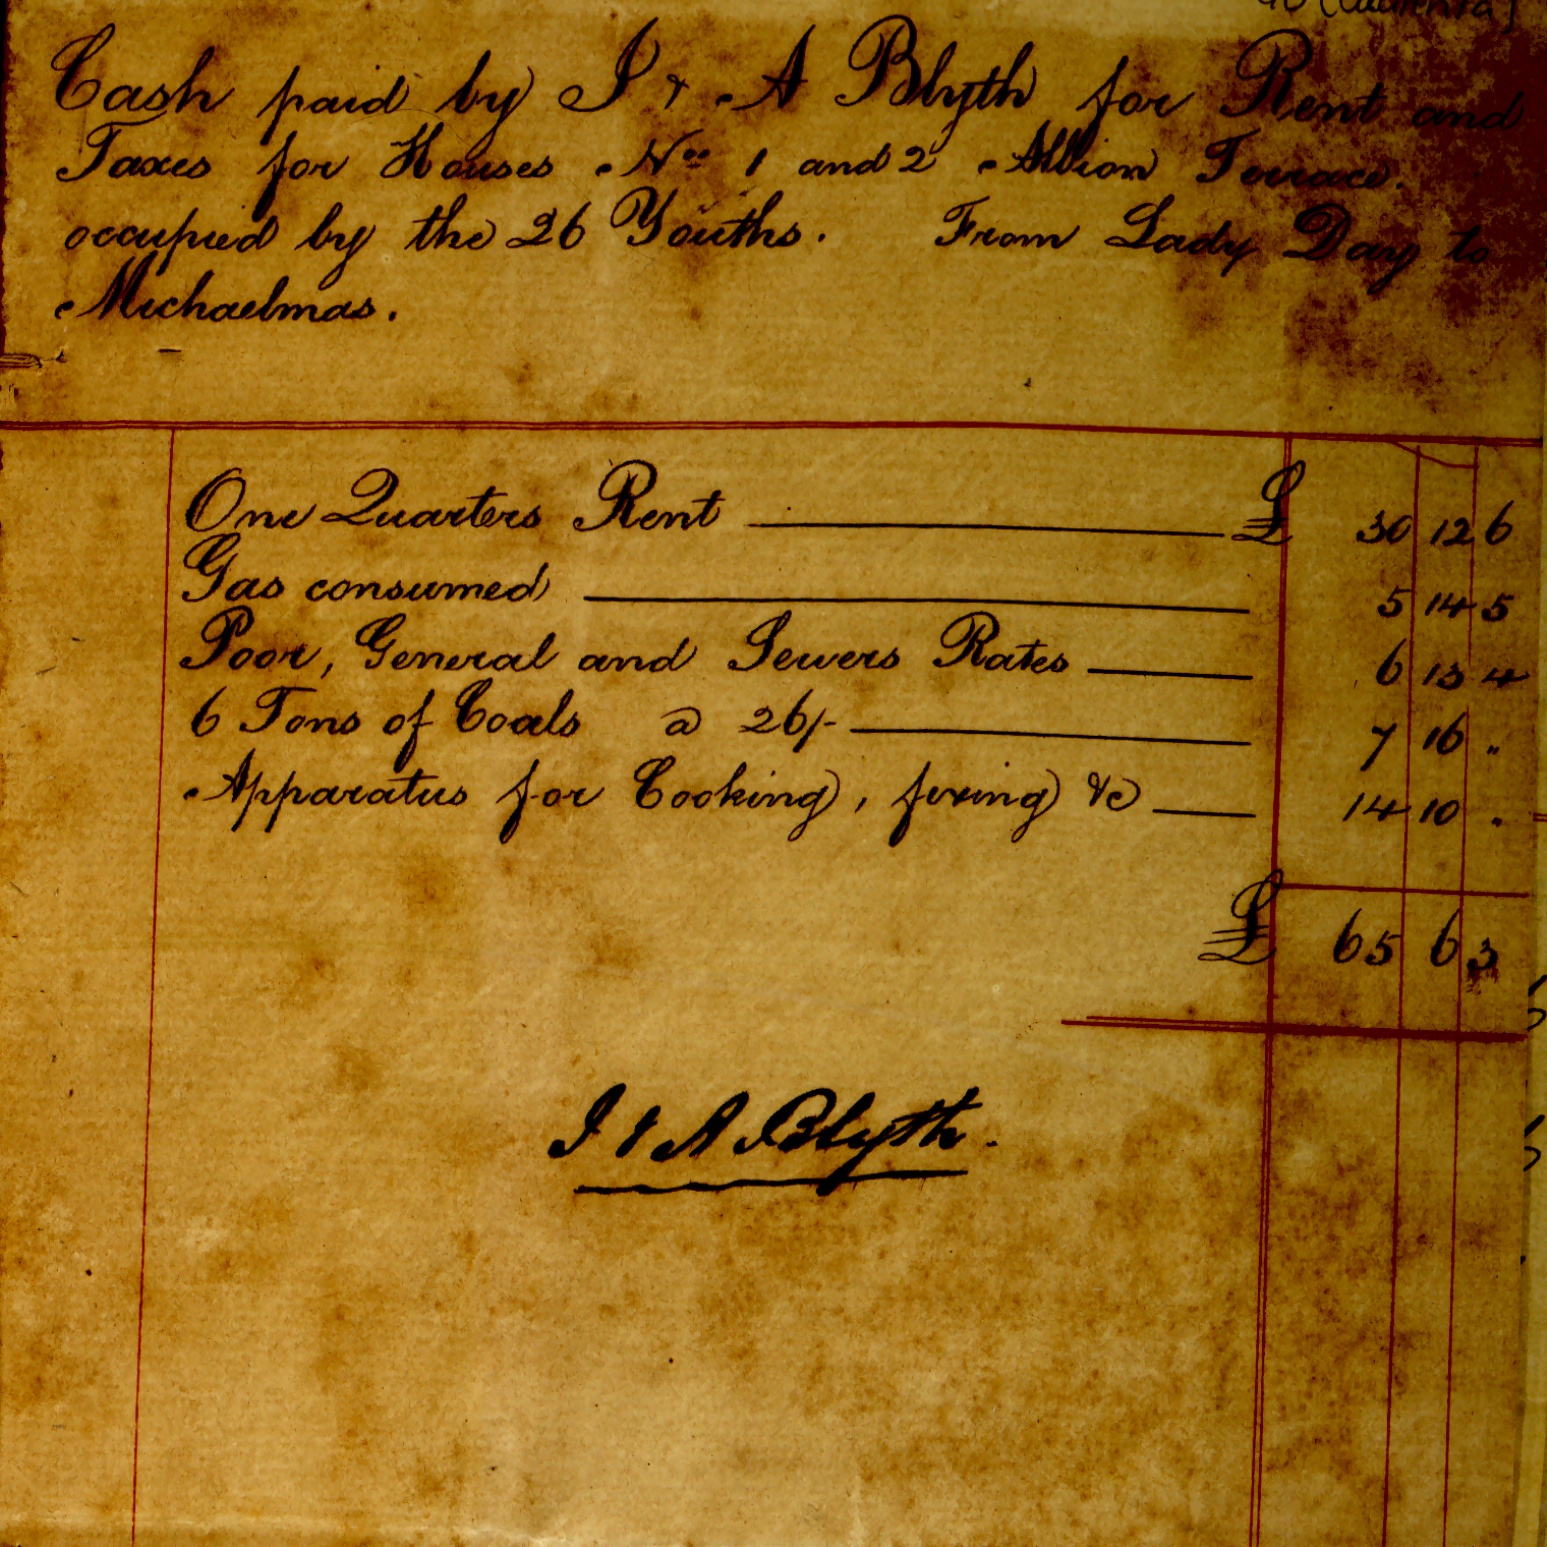 Cash paid by J & A Blyth for Rent and
Taxes for Houses Nos 1 and 2 Albion Terrace.
occupied by the 26 Youths. From Lady Day to
Michaelmas.
One Quarters Rent £ 30 12 6
Gas consumed 5 14 5
Poor, General and Sewers Rates 6 13 4
6 Tons of Coals @ 26/- 7 16 "
Apparatus for Cooking, fixing &c 14 10 "
£ 65 6 3
J & A Blyth.